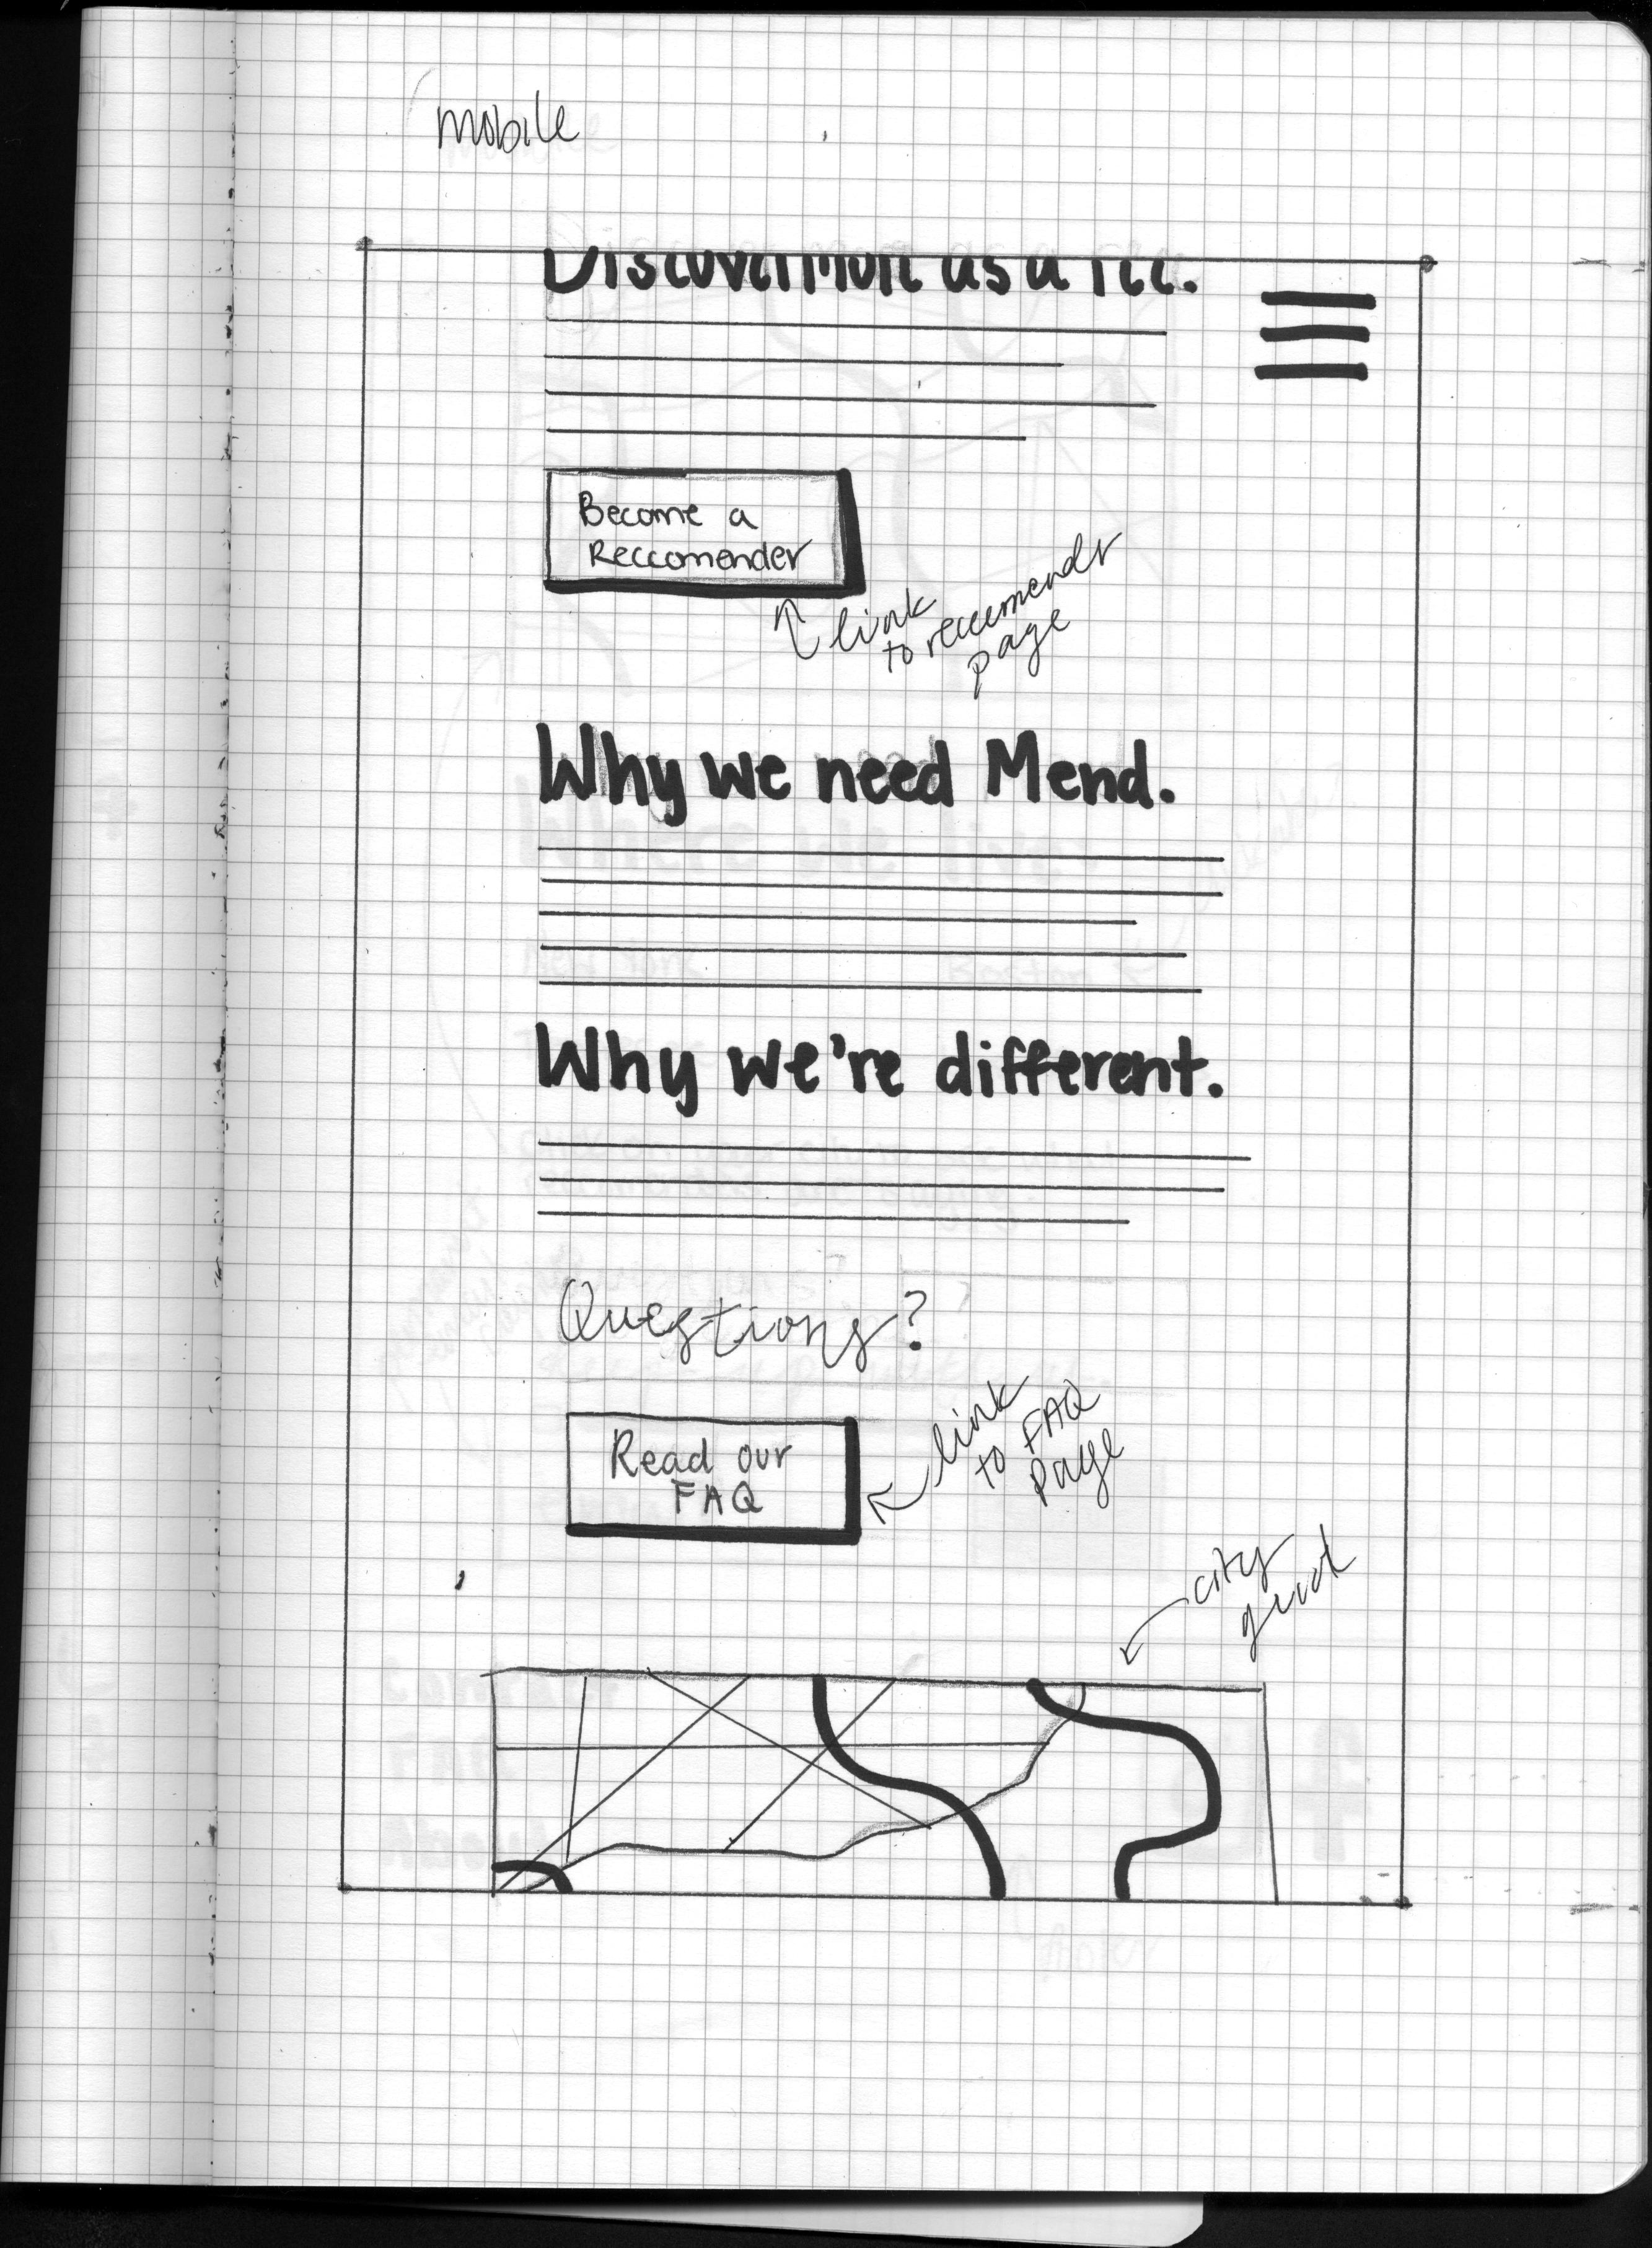 mobile
Discover more as a rec.
Become a
Reccomender
link
to reccomendr
page
Why we need Mend.
Why we're different.
Questions?
Read our
FAQ
link
to FAQ
page
city
grid